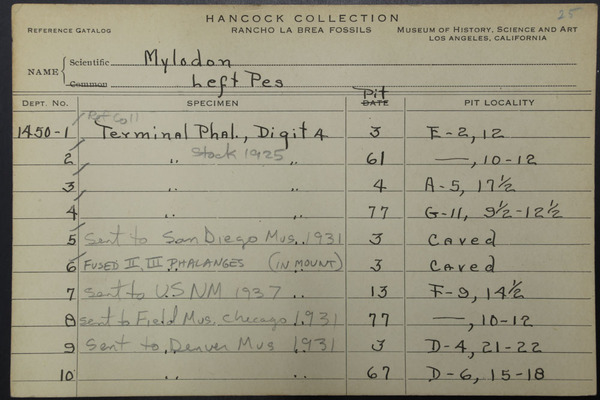 HANCOCK COLLECTION 25
REFERENCE CATALOG RANCHO LA BREA FOSSILS MUSEUM OF HISTORY, SCIENCE AND ART
LOS ANGELES, CALIFORNIA
NAME { Scientific Mylodon
Common Left Pes
Pit
DEPT. NO. SPECIMEN DATE PIT LOCALITY
Ref Coll
1450-1 Terminal Phal., Digit 4 3 E-2, 12
2 " Stock 1925 " 61 —, 10-12
3 " " 4 A-5, 17½
4 " " 77 G-11, 9½-12½
5 Sent to San Diego Mus. 1931 3 Caved
6 FUSED II, III PHALANGES (IN MOUNT) 3 Caved
7 sent to USNM 1937 " 13 F-9, 14½
8 sent to Field Mus. Chicago 1931 77 —, 10-12
9 Sent to Denver Mus 1931 3 D-4, 21-22
10 " " 67 D-6, 15-18